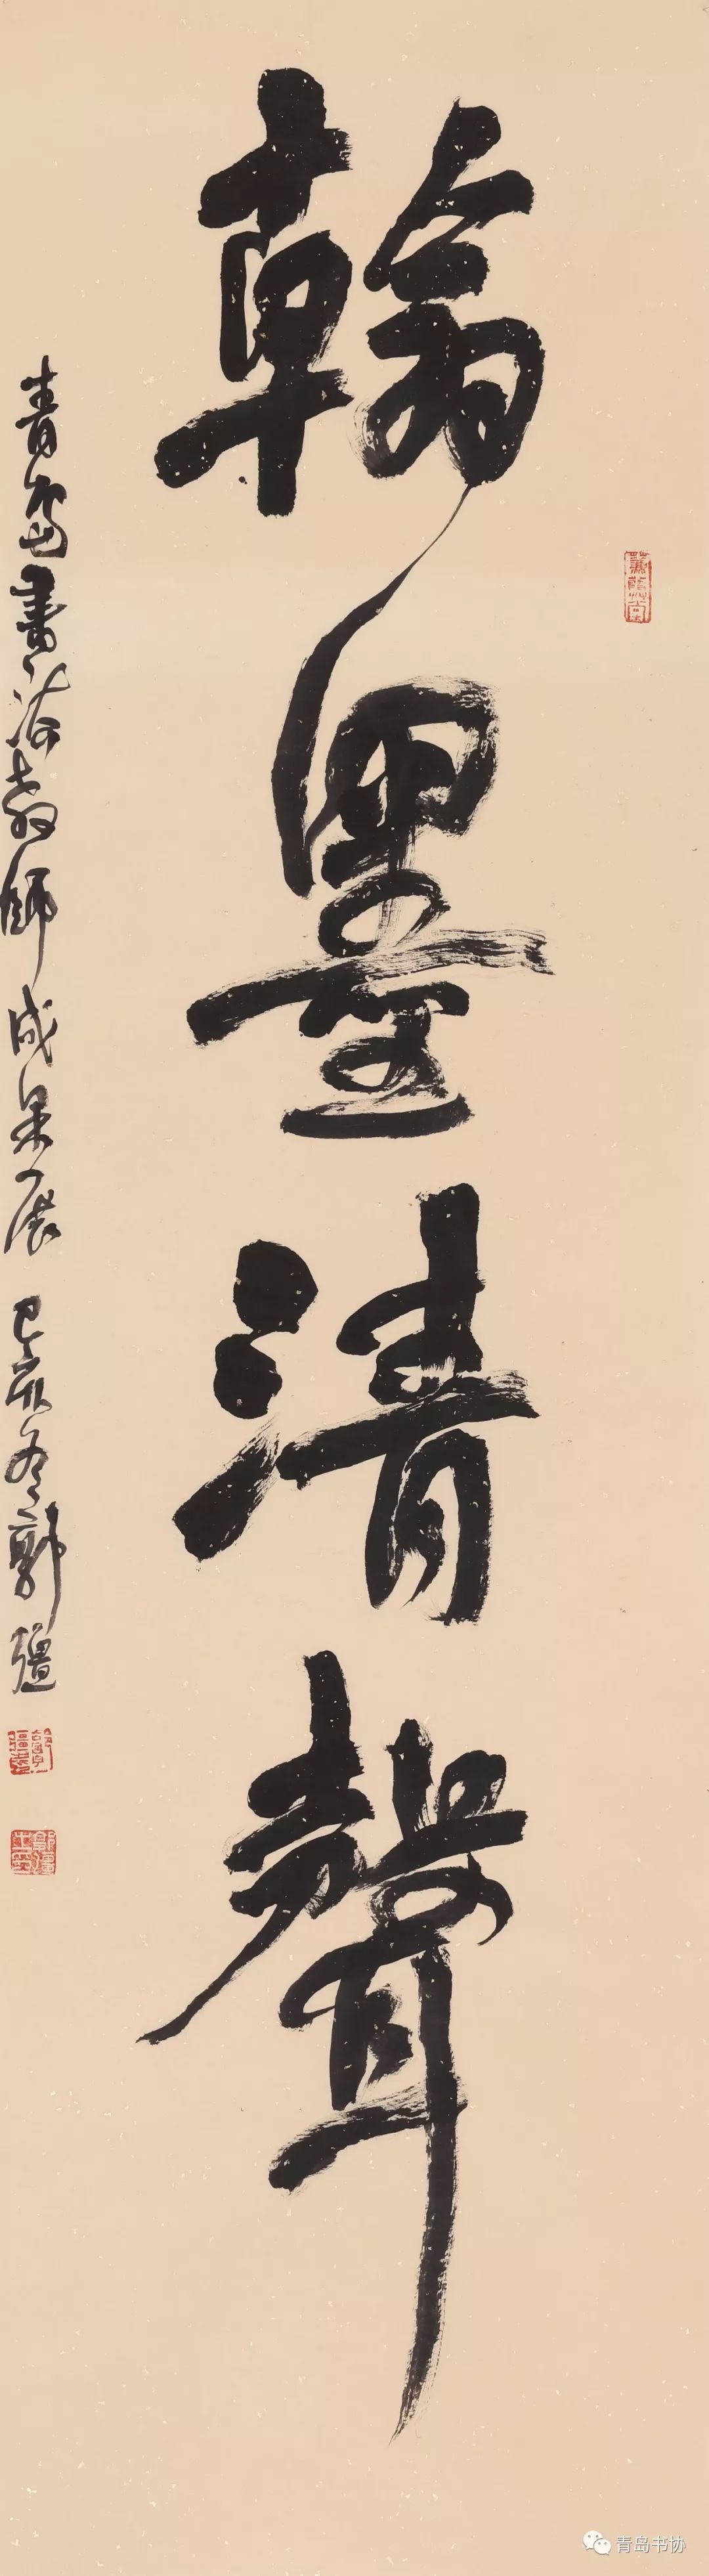 翰墨清聲
青島書法教師成果展 己亥冬 郭強
青岛书协